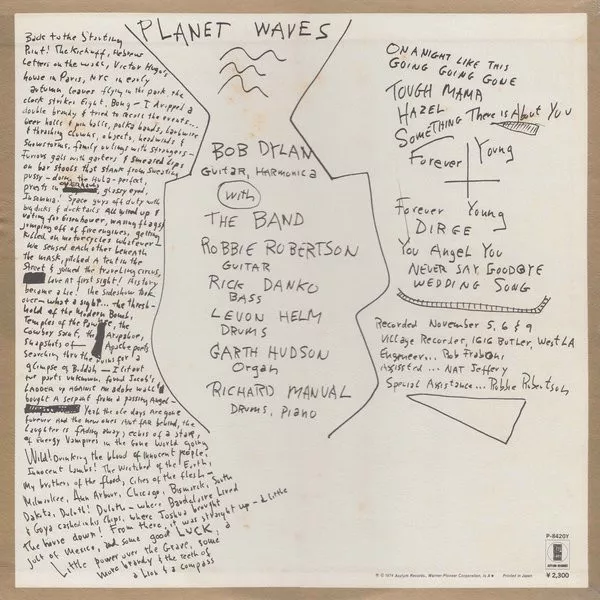 PLANET WAVES
Back to the Starting
Point! The Kickoff, Hebrew
Letters on the wall, Victor Hugo's
house in Paris, NYC in early
autumn, leaves flying in the park, the
clock strikes Eight, Bong — I dropped a
double brandy & tried to recall the events...
beer halls & pin balls, polka bands, barbwire
& thrashing clowns, objects, headwinds &
Snowstorms, family outings with strangers —
Furious gals with garters & smeared Lips
on bar stools that stank from sweating
pussy — doing the Hula — perfect,
priests in
glassy eyed
Insomnia! Space guys off duty with
big dicks & ducktails All wired up &
voting for Eisenhower, waving flags &
jumping off of fire engines, getting
killed on motorcycles whatever —
We sensed each other beneath
the mask, pitched A tent in the
Street & joined the traveling circus,
Love at first sight! History
became a lie! the sideshow took
over — what a sight... the thresh-
hold of the Modern Bomb,
Temples of the Pawnee, the
Cowboy saint, the Arapahoe,
Snapshots of Apache poets
searching thru the ruins for a
glimpse of Buddah — I lit out
for parts unknown, found Jacob's
Ladder up AGAINST An adobe wall &
bought A serpent from a passing Angel —
Yeah the ole days are gone
forever and the new ones Aint far behind, the
Laughter is fading away, echos of a star,
of Energy Vampires in the Gone World going
Wild! Drinking the blood of innocent people,
Innocent Lambs! The Wretched of the Earth,
My brothers of the flood, Cities of the flesh —
Milwaukee, Ann Arbor, Chicago, Bismarck, South
Dakota, Duluth! Duluth — where Baudelaire Lived
& Goya cashed in his Chips, where Joshua brought
The house down! From there, it was straight up — A Little
jolt of Mexico, and some good LUCK, a
Little power over the Grave, some
more brandy & the teeth of
a Lion & a compass
BOB DYLAN
Guitar, HARMONICA
with
THE BAND
ROBBIE ROBERTSON
GUITAR
RICK DANKO
BASS
LEVON HELM
DRUMS
GARTH HUDSON
Organ
RICHARD MANUAL
DRUMS, PIANO
ON A NIGHT LIKE THIS
GOING GOING GONE
TOUGH MAMA
HAZEL
SOMETHING There is About You
Forever Young
Forever Young
DIRGE
You Angel You
NEVER SAY GOODBYE
WEDDING SONG
Recorded November 5, 6 & 9
Village Recorder, 1616 Butler, West LA
Engineer... Rob Fraboni
Assisted... NAT Jeffery
Special Assistance... Robbie Robertson
P-8420Y
ASYLUM RECORDS
¥2,300
℗ © 1974 Asylum Records, Warner-Pioneer Corporation, Printed in Japan